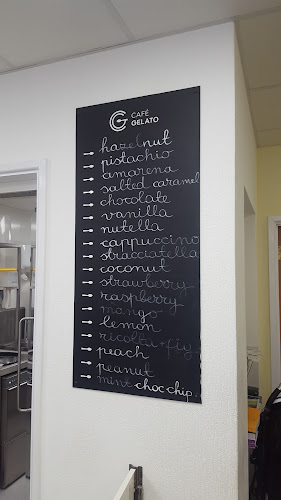 CAFÉ
GELATO
hazelnut
pistachio
amarena
salted caramel
chocolate
vanilla
nutella
cappuccino
stracciatella
coconut
strawberry
raspberry
mango
lemon
ricotta + fig
peach
peanut
mint choc chip